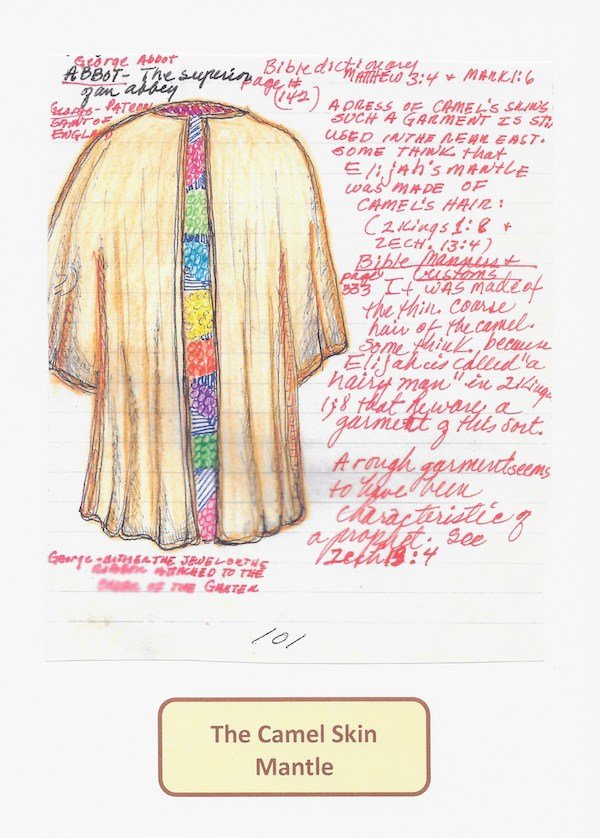 George Abbot
ABBOT - The superior
of an abbey
George - PATRON
SAINT OF
ENGLAND
Bible dictionary
page #
(142)
MATHEW 3:4 + MARK 1:6
A DRESS OF CAMEL'S SKINS
SUCH A GARMENT IS STILL
USED IN THE NEAR EAST.
SOME THINK that
Elijah's MANTLE
was MADE OF
CAMEL'S HAIR:
(2 Kings 1:8 +
ZECH. 13:4)
Bible Manners +
Customs,
page
333 It was made of
the thin coarse
hair of the camel.
Some think, because
Elijah is called "a
hairy man" in 2 Kings
1:8 that he wore a
garment of this sort.
A rough garment seems
to have been
characteristic of
a prophet. See
Zech 13:4
George - EITHER THE JEWEL OR THE
RIBBON ATTACHED TO THE
OF THE GARTER
101
The Camel Skin
Mantle